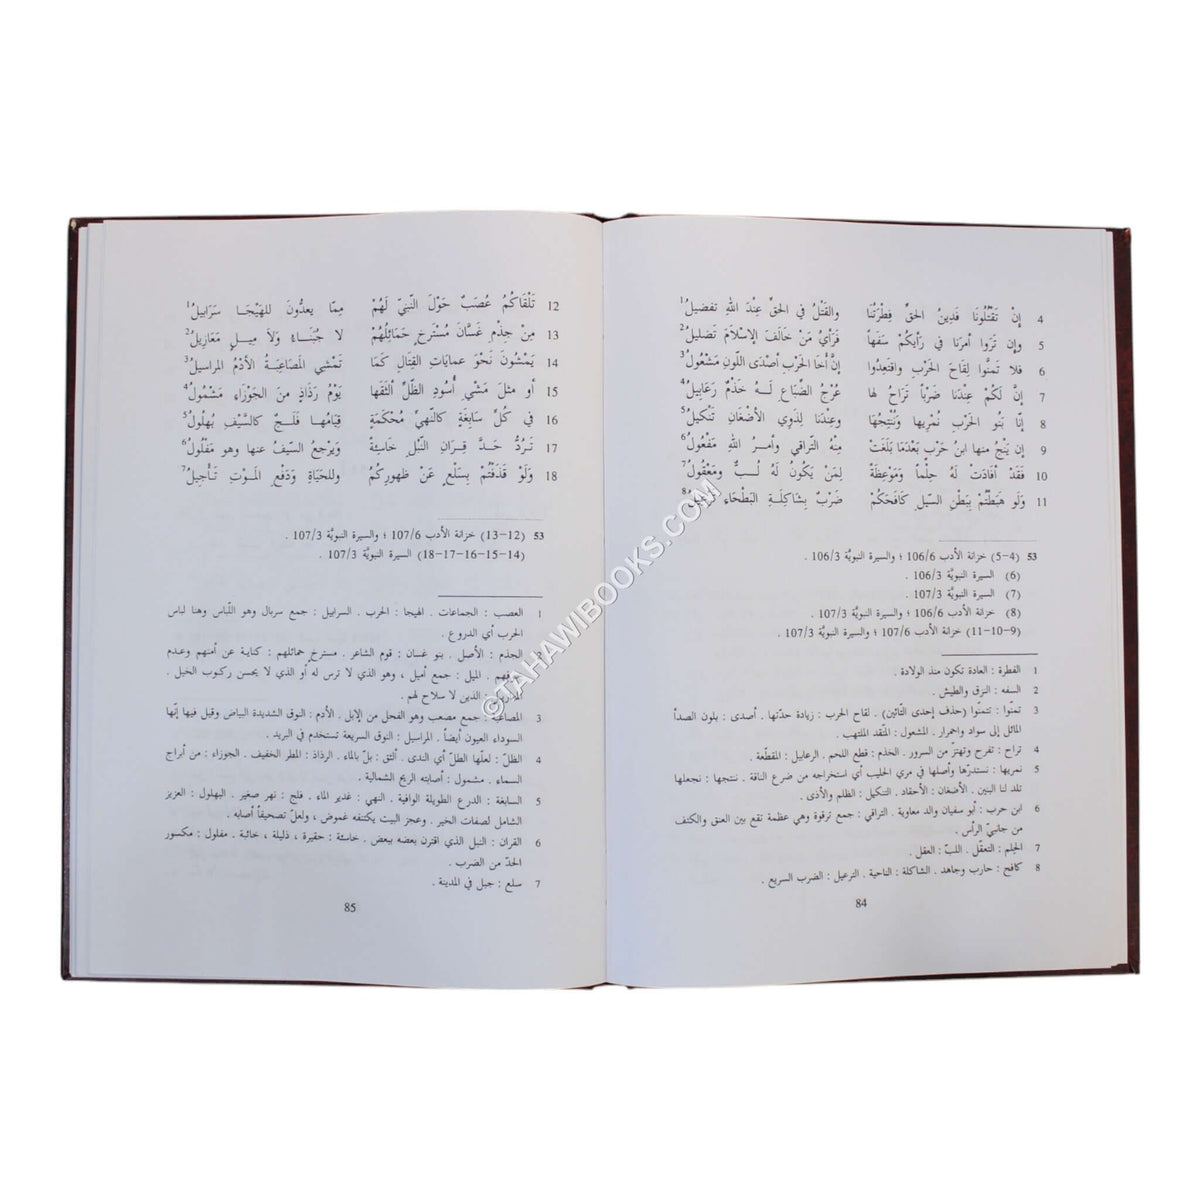 4 إنْ تَقْتُلُونَا فَدِينُ الحقِّ فِطْرَتُنَا والقَتْلُ في الحقِّ عِنْدَ اللهِ تفضيلُ1
5 وإن تَرَوا أمرَنا في رأيكُمْ سَفَهاً فَرَأيُ مَنْ خَالَفَ الإسْلامَ تضليلُ2
6 فلا تَمنَّوا لِقاحَ الحَرْبِ واقتَعِدُوا إنَّ أخَا الحَرْبِ أصْدَى اللّونِ مَشْعُولُ3
7 إنَّ لَكُمْ عِنْدَنا ضَرْباً تَرَاحُ لها عُرْجُ الضِّبَاعِ لَـهُ خَذْمٌ رَعَابِيلُ4
8 إنَّا بَنُو الحَرْبِ نُمريها ونُنْتِجُهَا وعِنْدَنا لِذَوي الأضْغَانِ تَنْكيلُ5
9 إن يَنْجُ منها ابنُ حَرْبٍ بَعْدَمَا بَلَغَتْ مِنْهُ التراقي وأمـرُ اللهِ مَفْعُولُ6
10 فقَدْ أفادَتْ لَهُ حِلْماً ومَوعِظَةً لِمَنْ يَكُونُ لَهُ لُبٌّ ومَعْقُولُ7
11 وَلو هَبَطْتُمْ بِبَطْنِ السّيلِ كَافَحَكُمْ ضَرْبٌ بِشَاكِلَـةِ البَطْحَاءِ تَرْعِيلُ8
53 (4-5) خزانة الأدب 106/6 ؛ والسيرة النبويَّة 106/3 .
(6) السيرة النبويَّة 106/3 .
(7) السيرة النبويَّة 107/3 .
(8) خزانة الأدب 106/6 ؛ والسيرة النبويَّة 107/3 .
(9-10-11) خزانة الأدب 107/6 ؛ والسيرة النبويَّة 107/3 .
1 الفطرة : العادة تكون منذ الولادة .
2 السفه : النزق والطيش .
3 تمنّوا : تتمنّوا (حذف إحدى التّائين) . لقاح الحرب : زيادة حدّتها . أصدى : بلون الصدأ
المائل إلى سواد واحمرار . المشعول : المتّقد الملتهب .
4 تراح : تفرح وتهتزّ من السرور . الخذم : قطع اللحم . الرعابيل : المقطّعة .
5 نمريها : نستدرّها وأصلها في مري الحليب أي استخراجه من ضرع الناقة . ننتجها : نجعلها
تلد لنا البنين . الأضغان : الأحقاد . التنكيل : الظلم والأذى .
6 ابن حرب : أبو سفيان والد معاوية . التراقي : جمع ترقوة وهي عظمة تقع بين العنق والكتف
من جانبيّ الرأس .
7 الحِلم : التعقّل . اللبّ : العقل .
8 كافح : حارب وجاهد . الشاكلة : الناحية . الترعيل : الضرب السريع .
84
12 تَلْقَاكُمُ عُصَبٌ حَوْلَ النّبيِّ لَهُمْ مِمّا يعدُّونَ للهَيْجَـا سَرَابيلُ1
13 مِنْ جِذْمِ غَسَّانَ مُسْتَرخٍ حَمَائلُهُمْ لا جُبَنَـاءُ وَلاَ مِيـلٍ مَعَازيلُ2
14 يَمْشُونَ نَحْوَ عمايَاتِ القِتَالِ كَمَا تَمْشي المَصَاعِبَـةُ الأدْمُ المراسيلُ3
15 أو مثلَ مَشْيِ أُسُودِ الظّلِّ ألثَقَها يَوْمُ رَذَاذٍ منَ الجوْزاءِ مَشْمُولُ4
16 في كُلِّ سابِغَةٍ كالنّهيِ مُحْكَمَةٍ قيَامُهـا فَلَـجٌ كالسَّيْفِ بُهلُولُ5
17 تَـرُدُّ حَـدَّ قِـرانِ النّبْلِ خَاسِئةً ويَرْجعُ السّيفُ عنها وهو مَفْلُولُ6
18 وَلَوْ قَذَفْتُمْ بِسَلْعٍ عَنْ ظهورِكُمُ وللحيَاةِ ودَفْعِ المَـوتِ تَـأجيلُ7
53 (12-13) خزانة الأدب 107/6 ؛ والسيرة النبويَّة 107/3 .
(14-15-16-17-18) السيرة النبويَّة 107/3 .
1 العصب : الجماعات . الهيجا : الحرب . السرابيل : جمع سربال وهو اللّباس وهنا لباس
الحرب أي الدروع .
2 الجذم : الأصل . بنو غسان : قوم الشاعر . مسترخٍ حمائلهم : كناية عن أمنهم وعدم
الميل : جمع أميل ، وهو الذي لا ترس له أو الذي لا يحسن ركوب الخيل .
الذين لا سلاح لهم .
3 المصاعبة : جمع مصعب وهو الفحل من الإبل . الأدم : النوق الشديدة البياض وقيل فيها إنّها
السوداء العيون أيضاً . المراسيل : النوق السريعة تستخدم في البريد .
4 الظلّ : لعلّها الطلّ أي الندى . ألثق : بلّ بالماء . الرذاذ : المطر الخفيف . الجوزاء : من أبراج
السماء . مشمول : أصابته الريح الشمالية .
5 السابغة : الدرع الطويلة الوافية . النهي : غدير الماء . فلج : نهر صغير . البهلول : العزيز
الشامل لصفات الخير . وعجز البيت يكتنفه غموض ، ولعلّ تصحيفاً أصابه .
6 القران : النبل الذي اقترن بعضه ببعض . خاسئة : حقيرة ، ذليلة ، خائبة . مفلول : مكسور
الحدّ من الضرب .
7 سلع : جبل في المدينة .
85
©TAHAWIBOOKS.COM